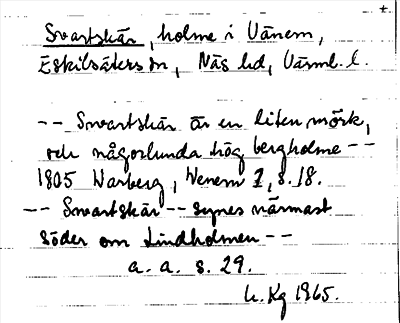 Svartskär, holme i Vänern,
Eskilsäters sn, Näs hd, Värml. l.
-- Svartskär är en liten mörk,
och någorlunda hög bergholme --
1805 Warberg, Wenern 1, s. 18.
-- Svartskär -- synes närmast
söder om Lindholmen --
a. a. s. 29.
U. Kg 1965.